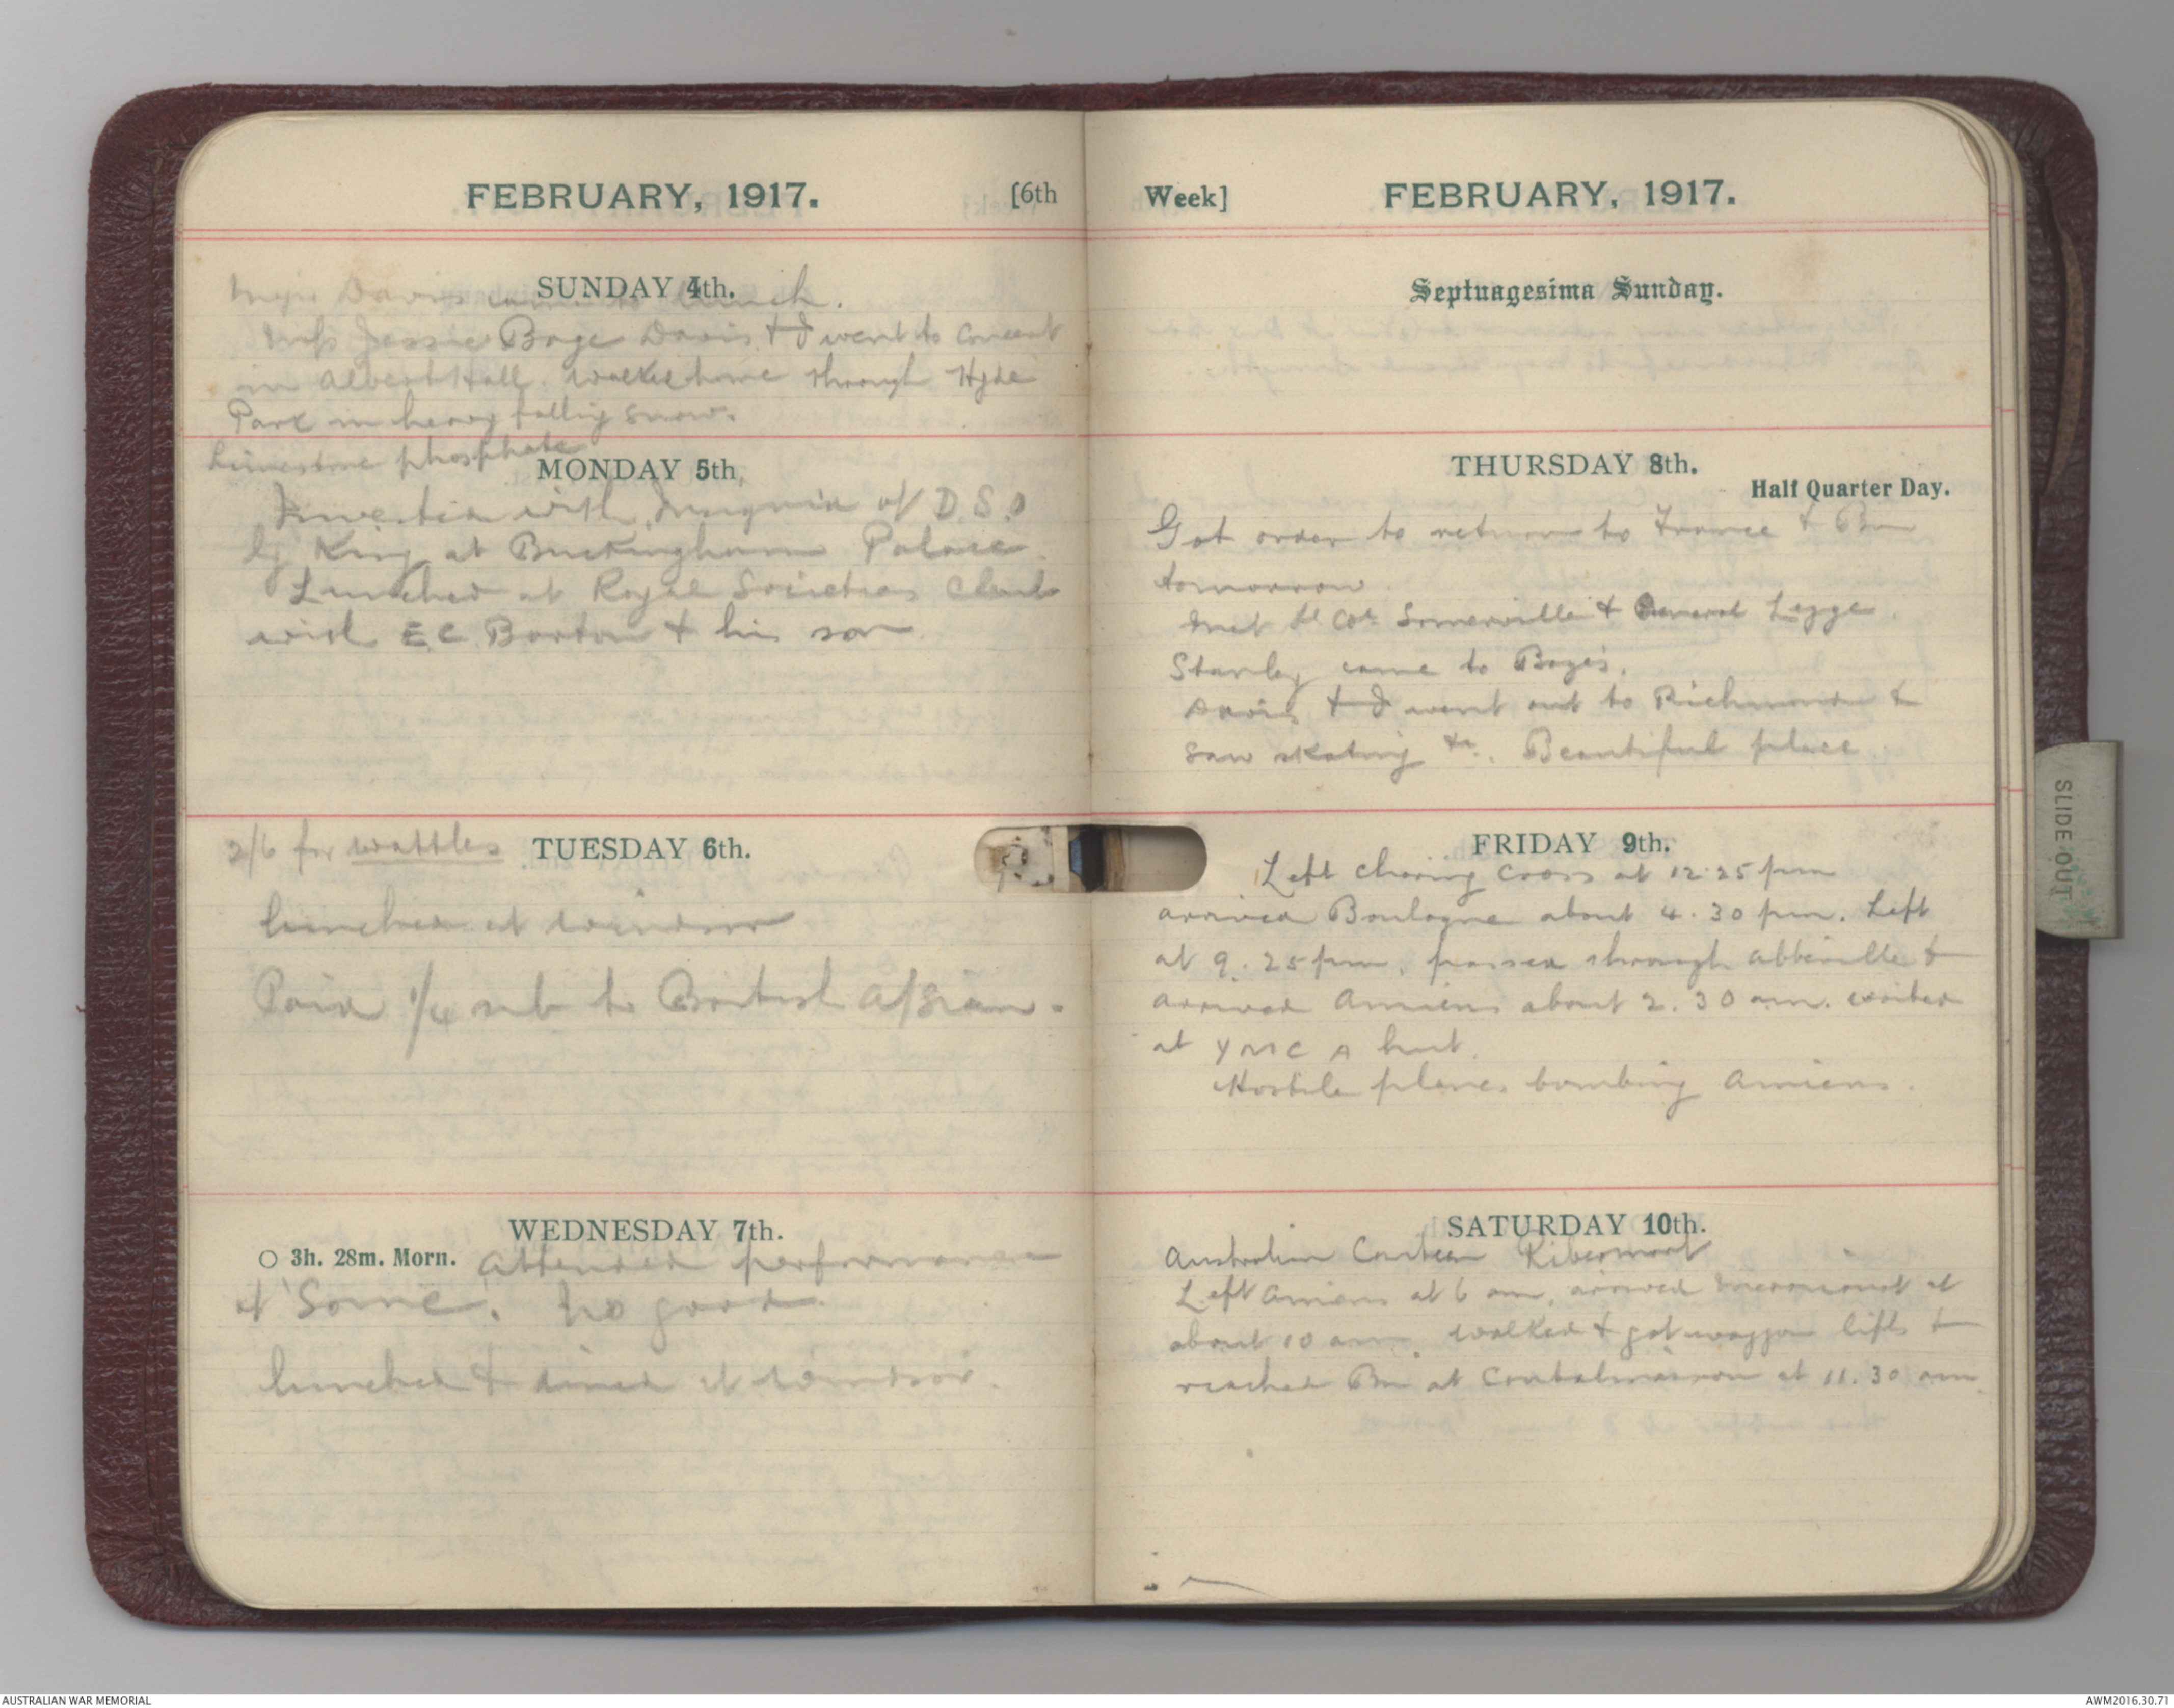 FEBRUARY, 1917. [6th
SUNDAY 4th.
Major Davis came to lunch.
Miss Jessie Bage Davis & I went to Concert
in Albert Hall. Walked home through Hyde
Park in heavy falling snow.
Limestone phosphate
MONDAY 5th.
Invested with Insignia of D.S.O
by King at Buckingham Palace.
Lunched at Royal Societies Club
with E C Barton & his son
2/6 for wattles TUESDAY 6th.
lunched at Windsor
Paid sub to British
WEDNESDAY 7th.
3h. 28m. Morn. Attended performance
of 'Some'. No good
lunched & dined at Windsor.
Week] FEBRUARY, 1917.
Septuagesima Sunday.
THURSDAY 8th.
Half Quarter Day.
Got order to return to France & Bn
tomorrow
Met Lt Col Somerville & General Legge.
Stanley came to Bage's.
Davis & I went out to Richmond &
saw skating &c. Beautiful place
FRIDAY 9th.
Left Charing Cross at 12.25 pm
arrived Boulogne about 4.30 pm. Left
at 9.25 pm, passed through Abbeville &
arrived Amiens about 2.30 am. waited
at YMCA hut.
Hostile planes bombing Amiens.
SATURDAY 10th.
Australian Canteen Ribemont
Left Amiens at 6 am, arrived Mericourt at
about 10 am. walked & got waggon lifts &
reached Bn at Contalmaison at 11.30 am
SLIDE OUT
AUSTRALIAN WAR MEMORIAL
AWM2016.30.71